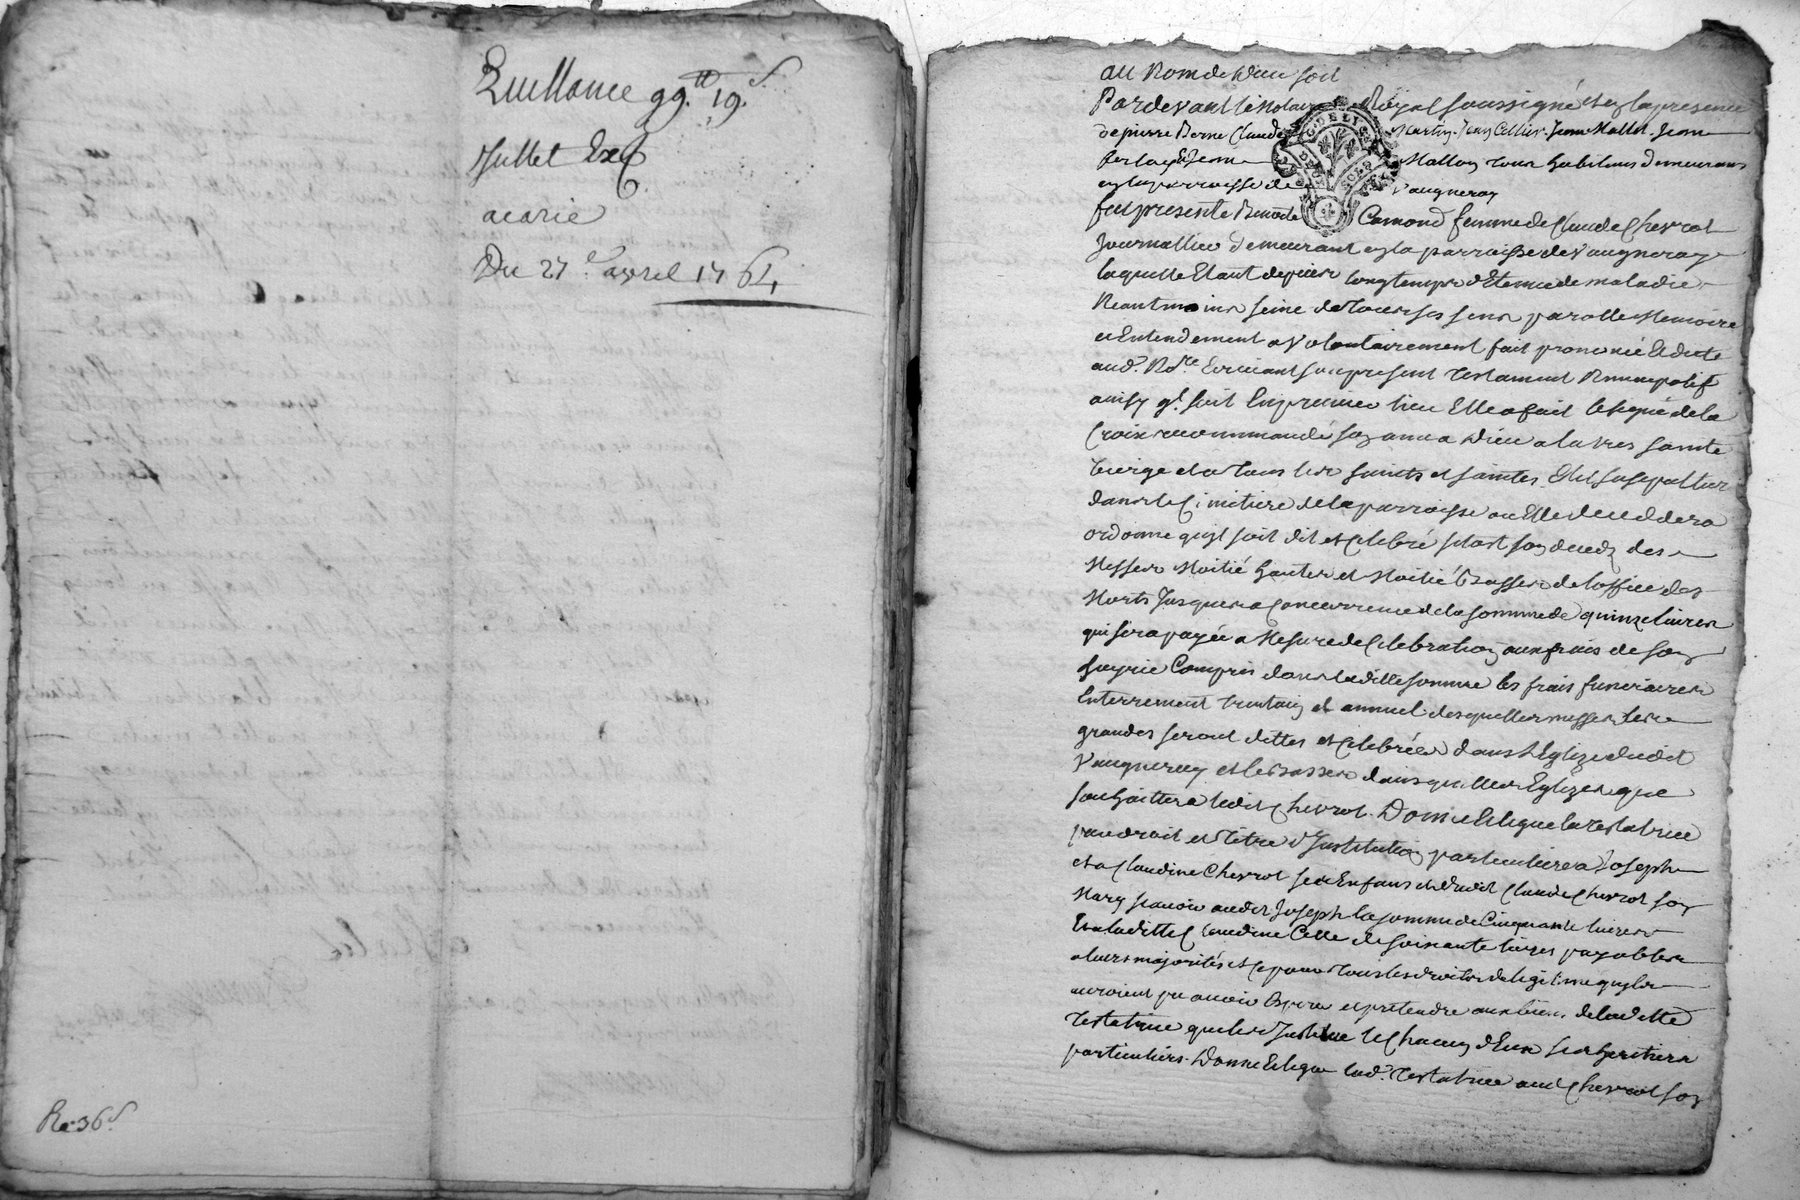 Quittance 99.tt 19.s
Jullet
acarie
Du 27.e avril 1764,
Re 36s
au Nom de Dieu soit
Pardevant le Notaire Royal soussigné et en la presence
de pierre Berne Claude Martin Jean Cellier Jean Mallet Jean
et Jean Mallon tous habitans demeurans
en la parroisse de Vaugneray
fut presente Benoite Camond femme de Claude Chevrot
Journallier demeurant en la parroisse de Vaugneray
laquelle Etant depuis longtemps detenue de maladie
Neantmoins seine de tous ses sens parolle Memoire
et Entendement a volontairement fait prononcé et dicté
aud.t No.re Ecrivant son present testament Nuncupatif
ainsy q.l suit En premier lieu Elle a fait le signe de la
Croix recommandé son ame a Dieu a la tres sainte
vierge et a tous les saints et saintes Elit sa sepulture
dans le Cimitiere de la parroisse ou Elle decedera
ordonne qu'il soit dit et Celebré sitost son decedz des
Messes Moitié hautes et Moitié Basses de l'office des
Morts Jusques a Concurrence de la somme de quinze livres
qui sera payée a Mesure de Celebration aux frais de son
hoyrie Compris dans laditte somme les frais funeraires
Enterrement trentain et annuel desquelles messes les
grandes seront dittes et Celebrées dans l'Eglize dudit
Vaugneray et les basses dans quelles Eglizes que
souhaittera ledit Chevrot. Donne et legue la testatrice
par droit et titre d'Institution particuliere a Joseph
et a Claudine Chevrot ses Enfans et dudit Claude Chevrot son
Mary scavoir audit Joseph la somme de Cinquante livres
Et a laditte Claudine Celle de soixante livres payables
a leurs majorités et Ce pour tous les droits de legitime qu'ils
auroient pu avoir Esperer et pretendre aux biens de laditte
testatrice quelle Institue et Chacun d'Eux ses heritiers
particuliers. Donne et legue lad.e testatrice aud.t Chevrot son